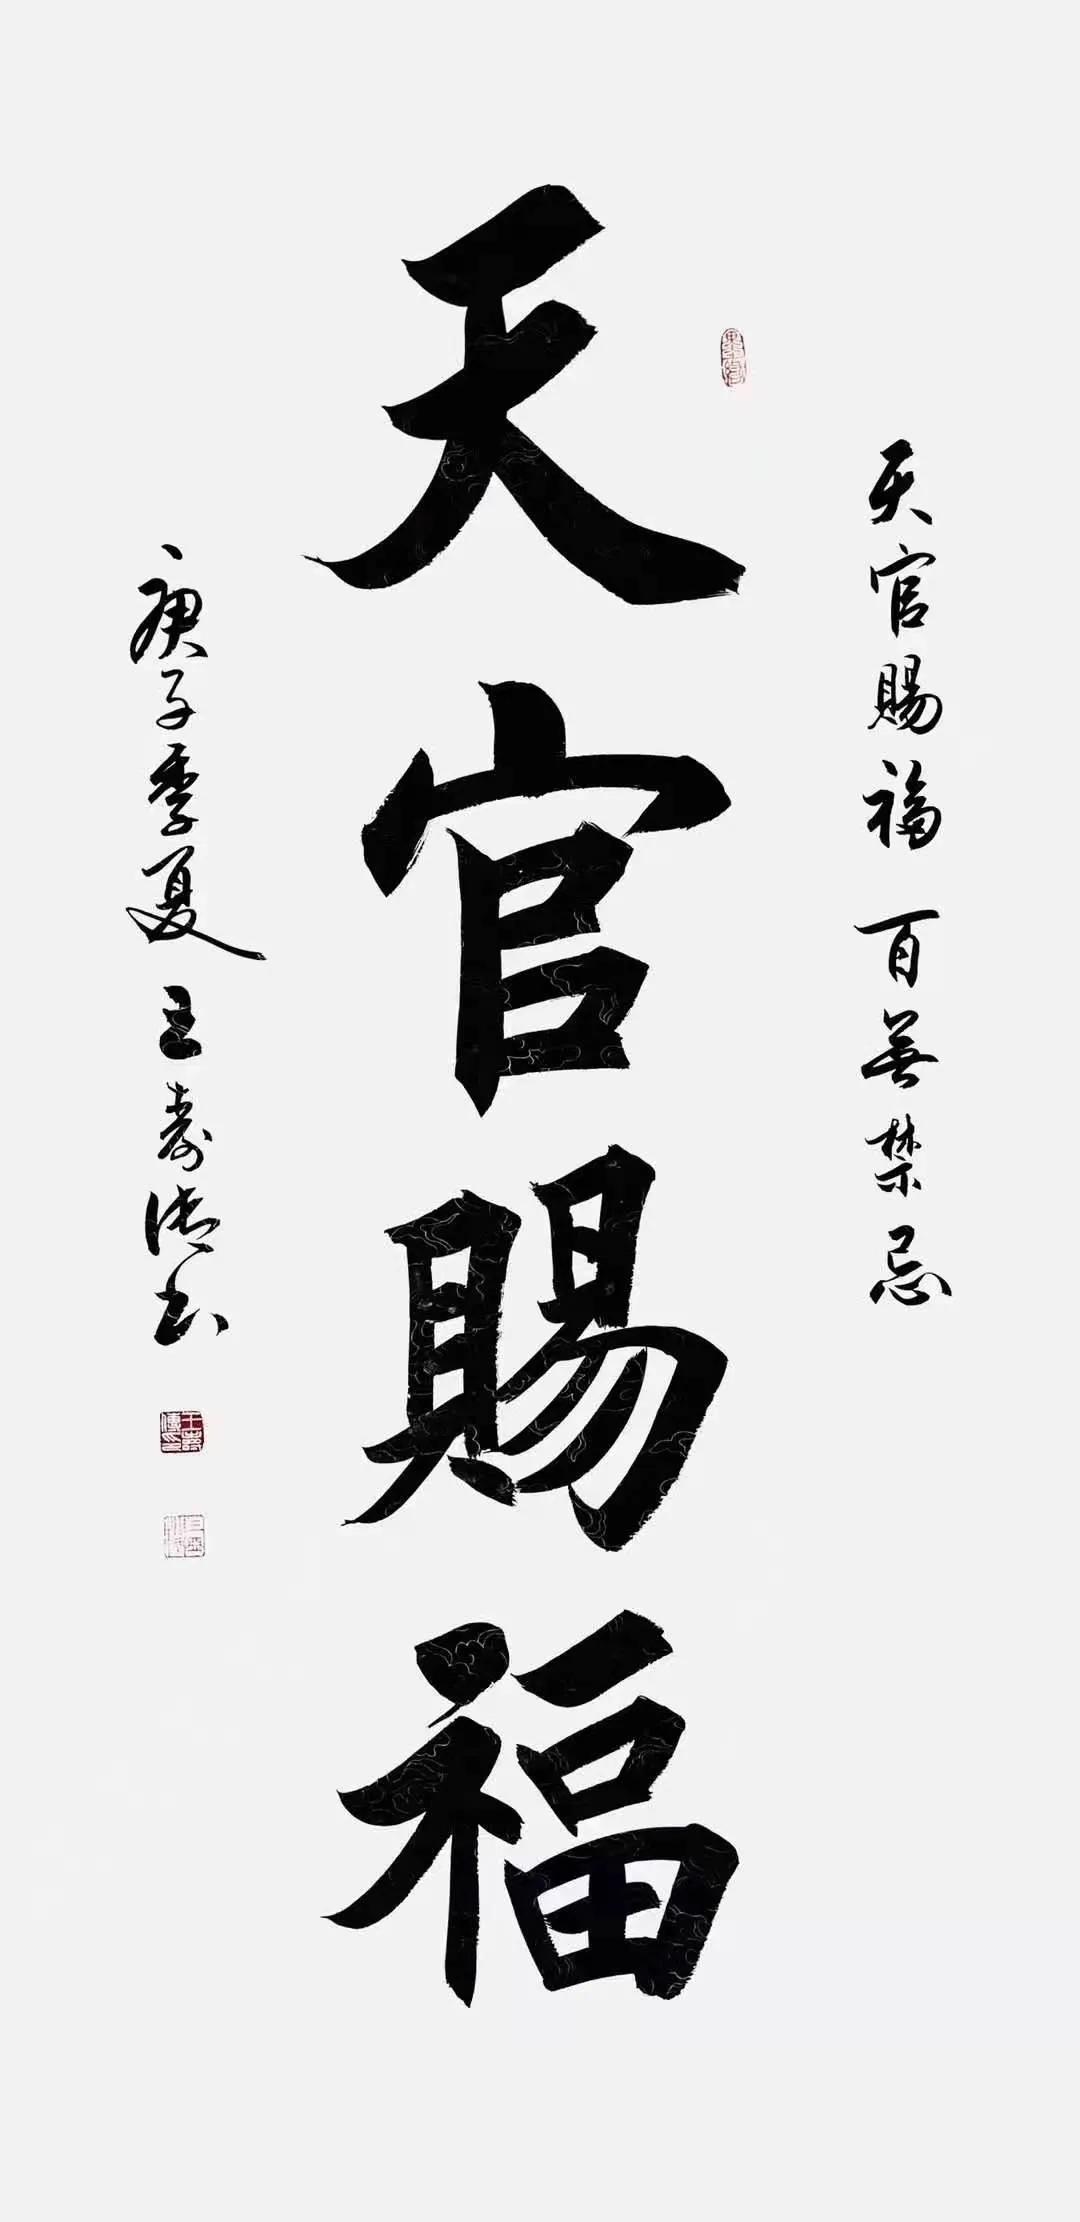 天官賜福 百無禁忌
天官賜福
庚子季夏 王壽傳書